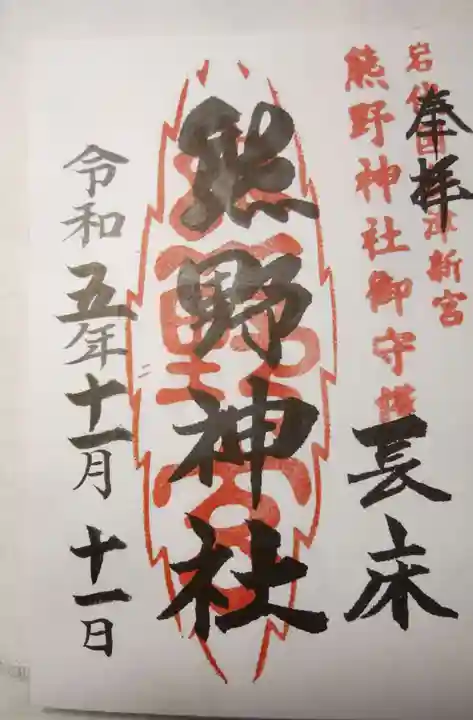 奉拝
長床
熊野神社御守護
熊野神社
令和五年十一月十一日